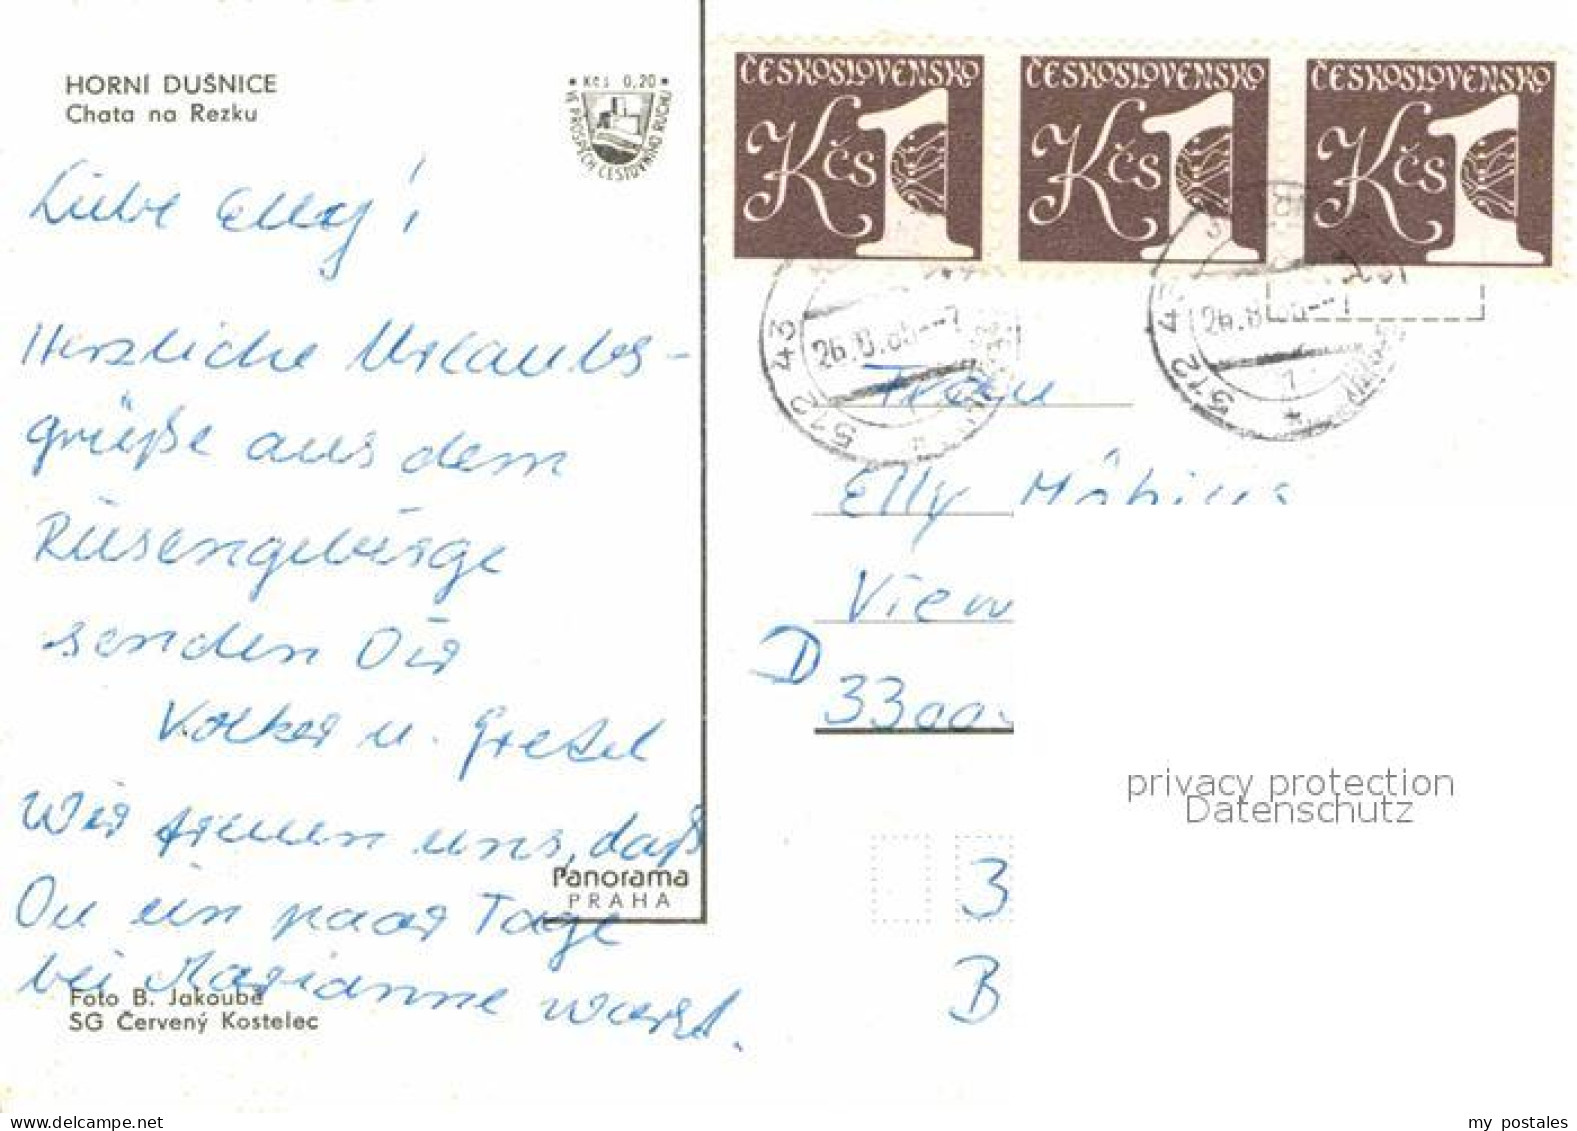 HORNÍ DUŠNICE
Chata na Rezku
• Kčs 0,20 •
VE PROSPĚCH CESTOVNÍHO RUCHU
Liebe Elly!
Herzliche Urlaubs-
grüße aus dem
Riesengebirge
senden Dir
Volker u. Gretel
Wir freuen uns, daß
Du ein paar Tage
bei Marianne warst.
Panorama
PRAHA
Foto B. Jakoubě
SG Červený Kostelec
ČESKOSLOVENSKO
Kčs 1
ČESKOSLOVENSKO
Kčs 1
ČESKOSLOVENSKO
Kčs 1
512 43
512 43
Frau
Elly Möbius
D
3300
3
B
privacy protection
Datenschutz
my postales